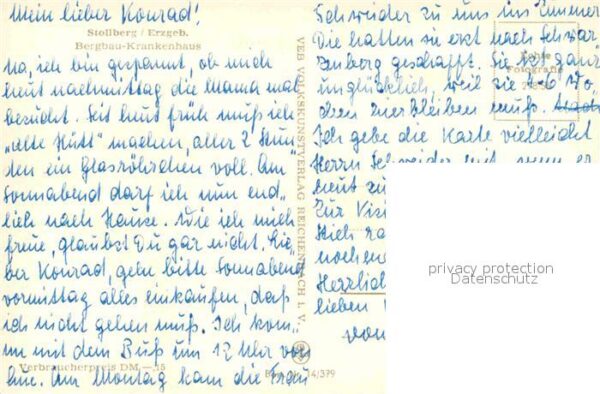 Mein lieber Konrad!
Stollberg / Erzgeb.
Bergbau-Krankenhaus
Na, ich bin gespannt, ob mich
heut nachmittag die Mama mal
besucht. Seit heut früh muß ich
machen, aller 2 Stun-
den ein Glasröhrchen voll. Am
Sonnabend darf ich nun end-
lich nach Hause. Wie ich mich
freue, glaubst Du gar nicht. Lie-
ber Konrad, geh bitte Sonnabend
vormittag alles einkaufen, daß
ich nicht gehen muß. Ich kom-
me mit dem Buß um 12 Uhr von
hier. Am Montag kam die Frau
Verbraucherpreis DM -.15
VEB VOLKSKUNSTVERLAG REICHENBACH I. V.
14/379
Schneider zu uns ins Zimmer
Die hatten sie erst nach Schwar-
zenberg geschafft. Sie ist ganz
unglücklich, weil sie 4-6 Wo-
chen muß.
Echte
Fotografie
Ich gebe die Karte vielleicht
Herrn Schneider mit, wenn er
heut
Zur
Herzlich
lieben
von
privacy protection
Datenschutz